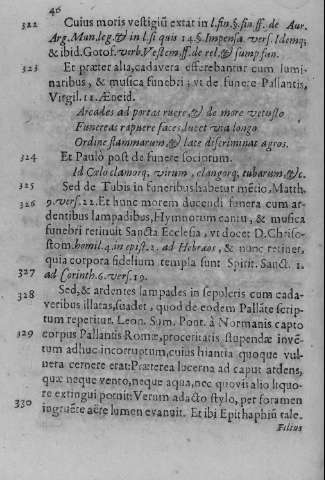 46
322 Cuius moris vestigiũ extat in l.fin.§.fin.ff. de Aur.
Arg.Man.leg.& in l.si quis 14.§.Impensa. vers. Idemq;
& ibid.Gotof. verb. Vestem.ff. de rel. & sump.fun.
323 Et præter alia, cadavera efferebantur cum lumi-
naribus, & musica funebri; vt de funere Pallantis,
Virgil. 11. Æneid.
Arcades ad portas ruere, & de more vetusto
Funereas rapuere faces, lucet via longo
Ordine flammarum, & late discriminat agros.
324 Et Paulo post de funere sociorum.
Id Cælo clamorq; virum, clangorq; tubarum, &c.
325 Sed de Tubis in funeribus habetur mẽtio, Matth.
326 9. vers. 22. Et hunc morem ducendi funera cum ar-
dentibus lampadibus, Hymnorum cantu, & musica
funebri retinuit Sancta Ecclesia, vt docet D. Chriso-
stom. homil. 4. in epist. 2. ad Hebræos, & nunc retinet,
quia corpora fidelium templa sunt Spirit. Sanct. 1.
327 ad Corinth. 6. vers. 19.
328 Sed, & ardentes lampades in sepulcris cum cada-
veribus illatas, suadet, quod de eodem Pallãte scrip-
tum repetitur. Leon. Sum. Pont. à Normanis capto
329 corpus Pallantis Romæ, proceritatis stupendæ invẽ-
tum adhuc incorruptum, cuius hiantia quoque vul-
nera cernere erat: Præterea lucerna ad caput ardens,
quæ neque vento, neque aqua, nec quovit alio liquo-
re extingui potuit: Verum adacto stylo, per foramen
330 ingruẽte aëre lumen evanuit. Et ibi Epithaphiũ tale.
Filius